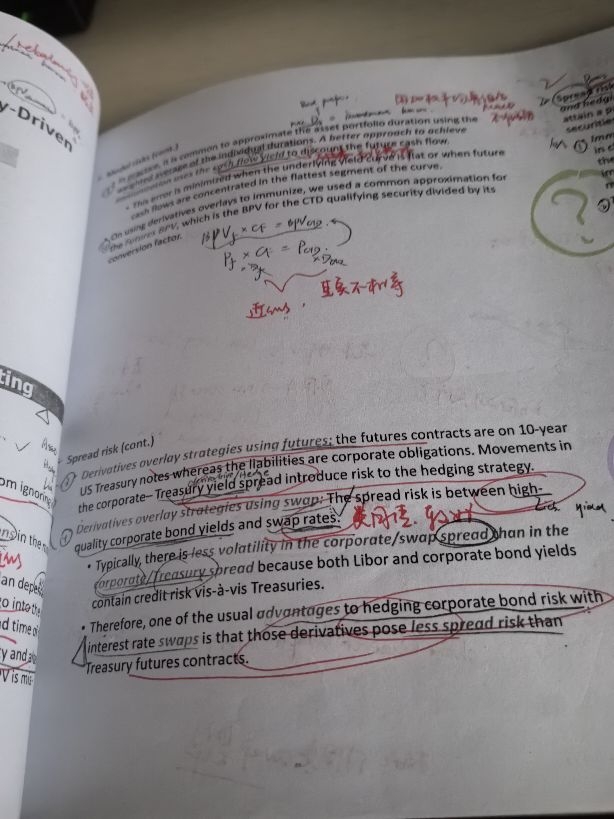 y-Driven
Model risks (cont.)
In practice, it is common to approximate the asset portfolio duration using the
weighted average of the individual durations. A better approach to achieve
immunization uses the cash flow yield to discount the future cash flow.
• This error is minimized when the underlying yield curve is flat or when future
cash flows are concentrated in the flattest segment of the curve.
On using derivatives overlays to immunize, we used a common approximation for
the Futures BPV, which is the BPV for the CTD qualifying security divided by its
conversion factor.
BPVf × CF = BPVCTD
Pf × CF = PCTD
近似, 其实不相等
ting
Spread risk (cont.)
③ Derivatives overlay strategies using futures: the futures contracts are on 10-year
US Treasury notes whereas the liabilities are corporate obligations. Movements in
the corporate–Treasury yield spread introduce risk to the hedging strategy.
④ Derivatives overlay strategies using swap: The spread risk is between high-
quality corporate bond yields and swap rates.
• Typically, there is less volatility in the corporate/swap spread than in the
corporate/Treasury spread because both Libor and corporate bond yields
contain credit risk vis-à-vis Treasuries.
• Therefore, one of the usual advantages to hedging corporate bond risk with
interest rate swaps is that those derivatives pose less spread risk than
Treasury futures contracts.
om ignoring
in the
an depe
o into the
d time o
y and a
V is mis-
Spread risk
and hedg
attain a p
securities
①
?